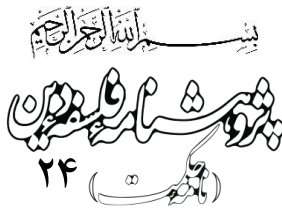 بسم الله الرحمن الرحیم
پژوهشنامه فلسفه دین
۲۴
(نامه حکمت)